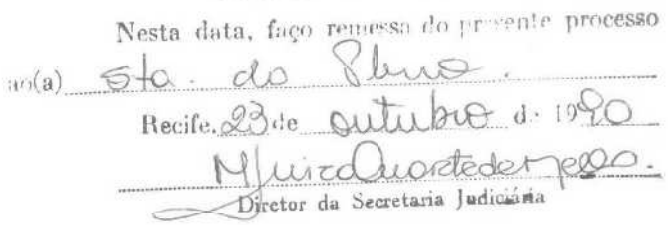 Nesta data, faço remessa do presente processo
ao(a) Sta. do Pleno.
Recife, 23 de outubro de 1990
M Luiza Duarte de Mello.
Diretor da Secretaria Judiciária